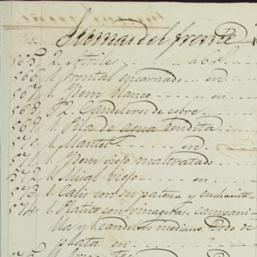 Suma del frente
565 2. Atriles a 6 p.
566 1. Frontal encarnado en
567 1. Ydem blanco en
568 32. Candeleros de cobre
569 1. Pila de agua bendita
570 1. Mantel en
571 1. Ydem viejo maltratado
572 1. Misal viejo
573 1. Caliz con su patena y cucharita
574 1. Platito con vinageras, campani-
lla y candelero mediano todo de
plata en